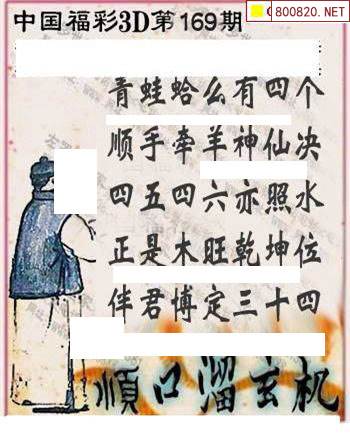 800820.NET
中国福彩3D第169期
青蛙蛤么有四个
顺手牵羊神仙决
四五四六亦照水
正是木旺乾坤位
伴君博定三十四
顺口溜玄机